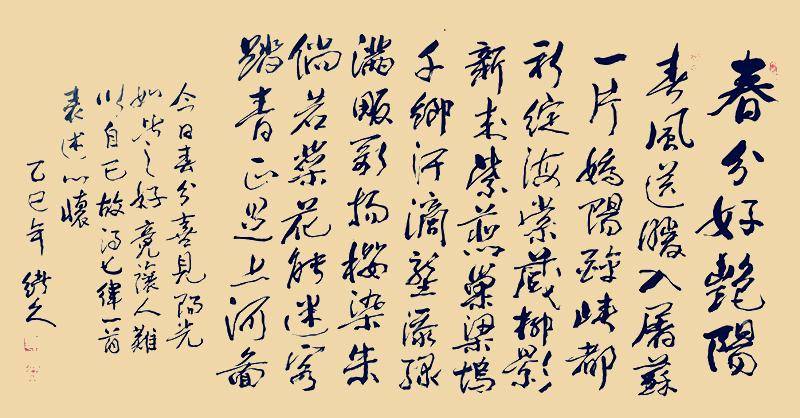 春分好艷陽
春風送暖入屠蘇
一片嬌陽醉峽都
彩綻海棠藏柳影
新来紫燕巢梁塢
千鄉汗滴壟添綠
滿畈歌揚櫻染朱
倘若菜花能迷客
踏青正是上河圖
今日春分喜見陽光
如此之好竟讓人難
以自已故得七律一首
表述心懷
乙巳年